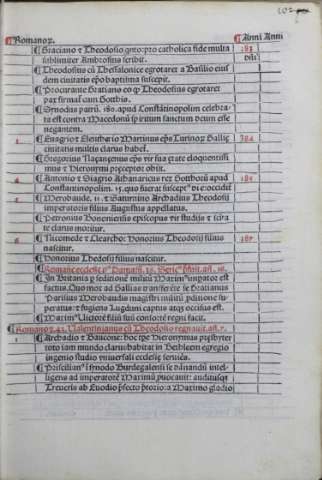 102
Romanoꝝ. Anni Anni
Graciano ⁊ Theodosio pro catholica fide multa 383
sublimiter Ambrosius scribit.
Theodosius cū Thessalonice egrotaret a Basilio eius
dem ciuitatis ep̄o baptisma suscepit.
Procurante Gratiano eo qp Theodosius egrotaret
pax firmat̄ cum Gotthis.
Synodus patrū .180. apud Constātinopolim celebra
ta est contra Macedonū sp̄iritum sanctum deum esse
negantem.
Euagrio ⁊ Eleutherio Martinus ep̄us Turinoꝝ Gallie 384
ciuitatis multis clarus habet̄.
Gregorius Naçançenus ep̄us vir sua etate eloquentissi
mus ⁊ Hieronymi preceptor obiit.
4 Antonio ⁊ Siagrio Athanaricus rex Gotthorū apud 385
Constantinopolim
5 Merobaude .11. ⁊ Saturnino Archadius Theodosij
imperatoris filius Augustus appellatus.
Petronius Bononiensis episcopus vir studijs ⁊ scita
te clarus moritur.
6 Nicomede ⁊ Clearcho: Honorius Theodosij filius 387
nascitur.
Honorius Theodosij filius nascitur.
In Britania p seditionē militū Maximꝰ impator est
factus. Quo mox ad Gallias transfrete se Gratianus
Parisius Merobaudis magistri militū pditione su
peratus: ⁊ fugiens Lugduni captus atqꝫ occisus est.
Maximꝰ Victorē filiū suū consortē regni facit.
Romanoꝝ. 42. Valentinianus cū Theodosio regnauit añ. 7.
1 Archadio ⁊ Baucone: hoc tpe Hieronymus presbyter
toto iam mundo clarus habitat in Bethleem egregio
ingenio studio vniuersali ecclesie seruiēs.
Priscilianꝰ Synodo Burdegalensi se damnādū intel-
ligens ad imperatorē Maximū puocauit: auditusqꝫ
Treueris ab Euodio p̄fecto p̄torio: a Maximo gladio